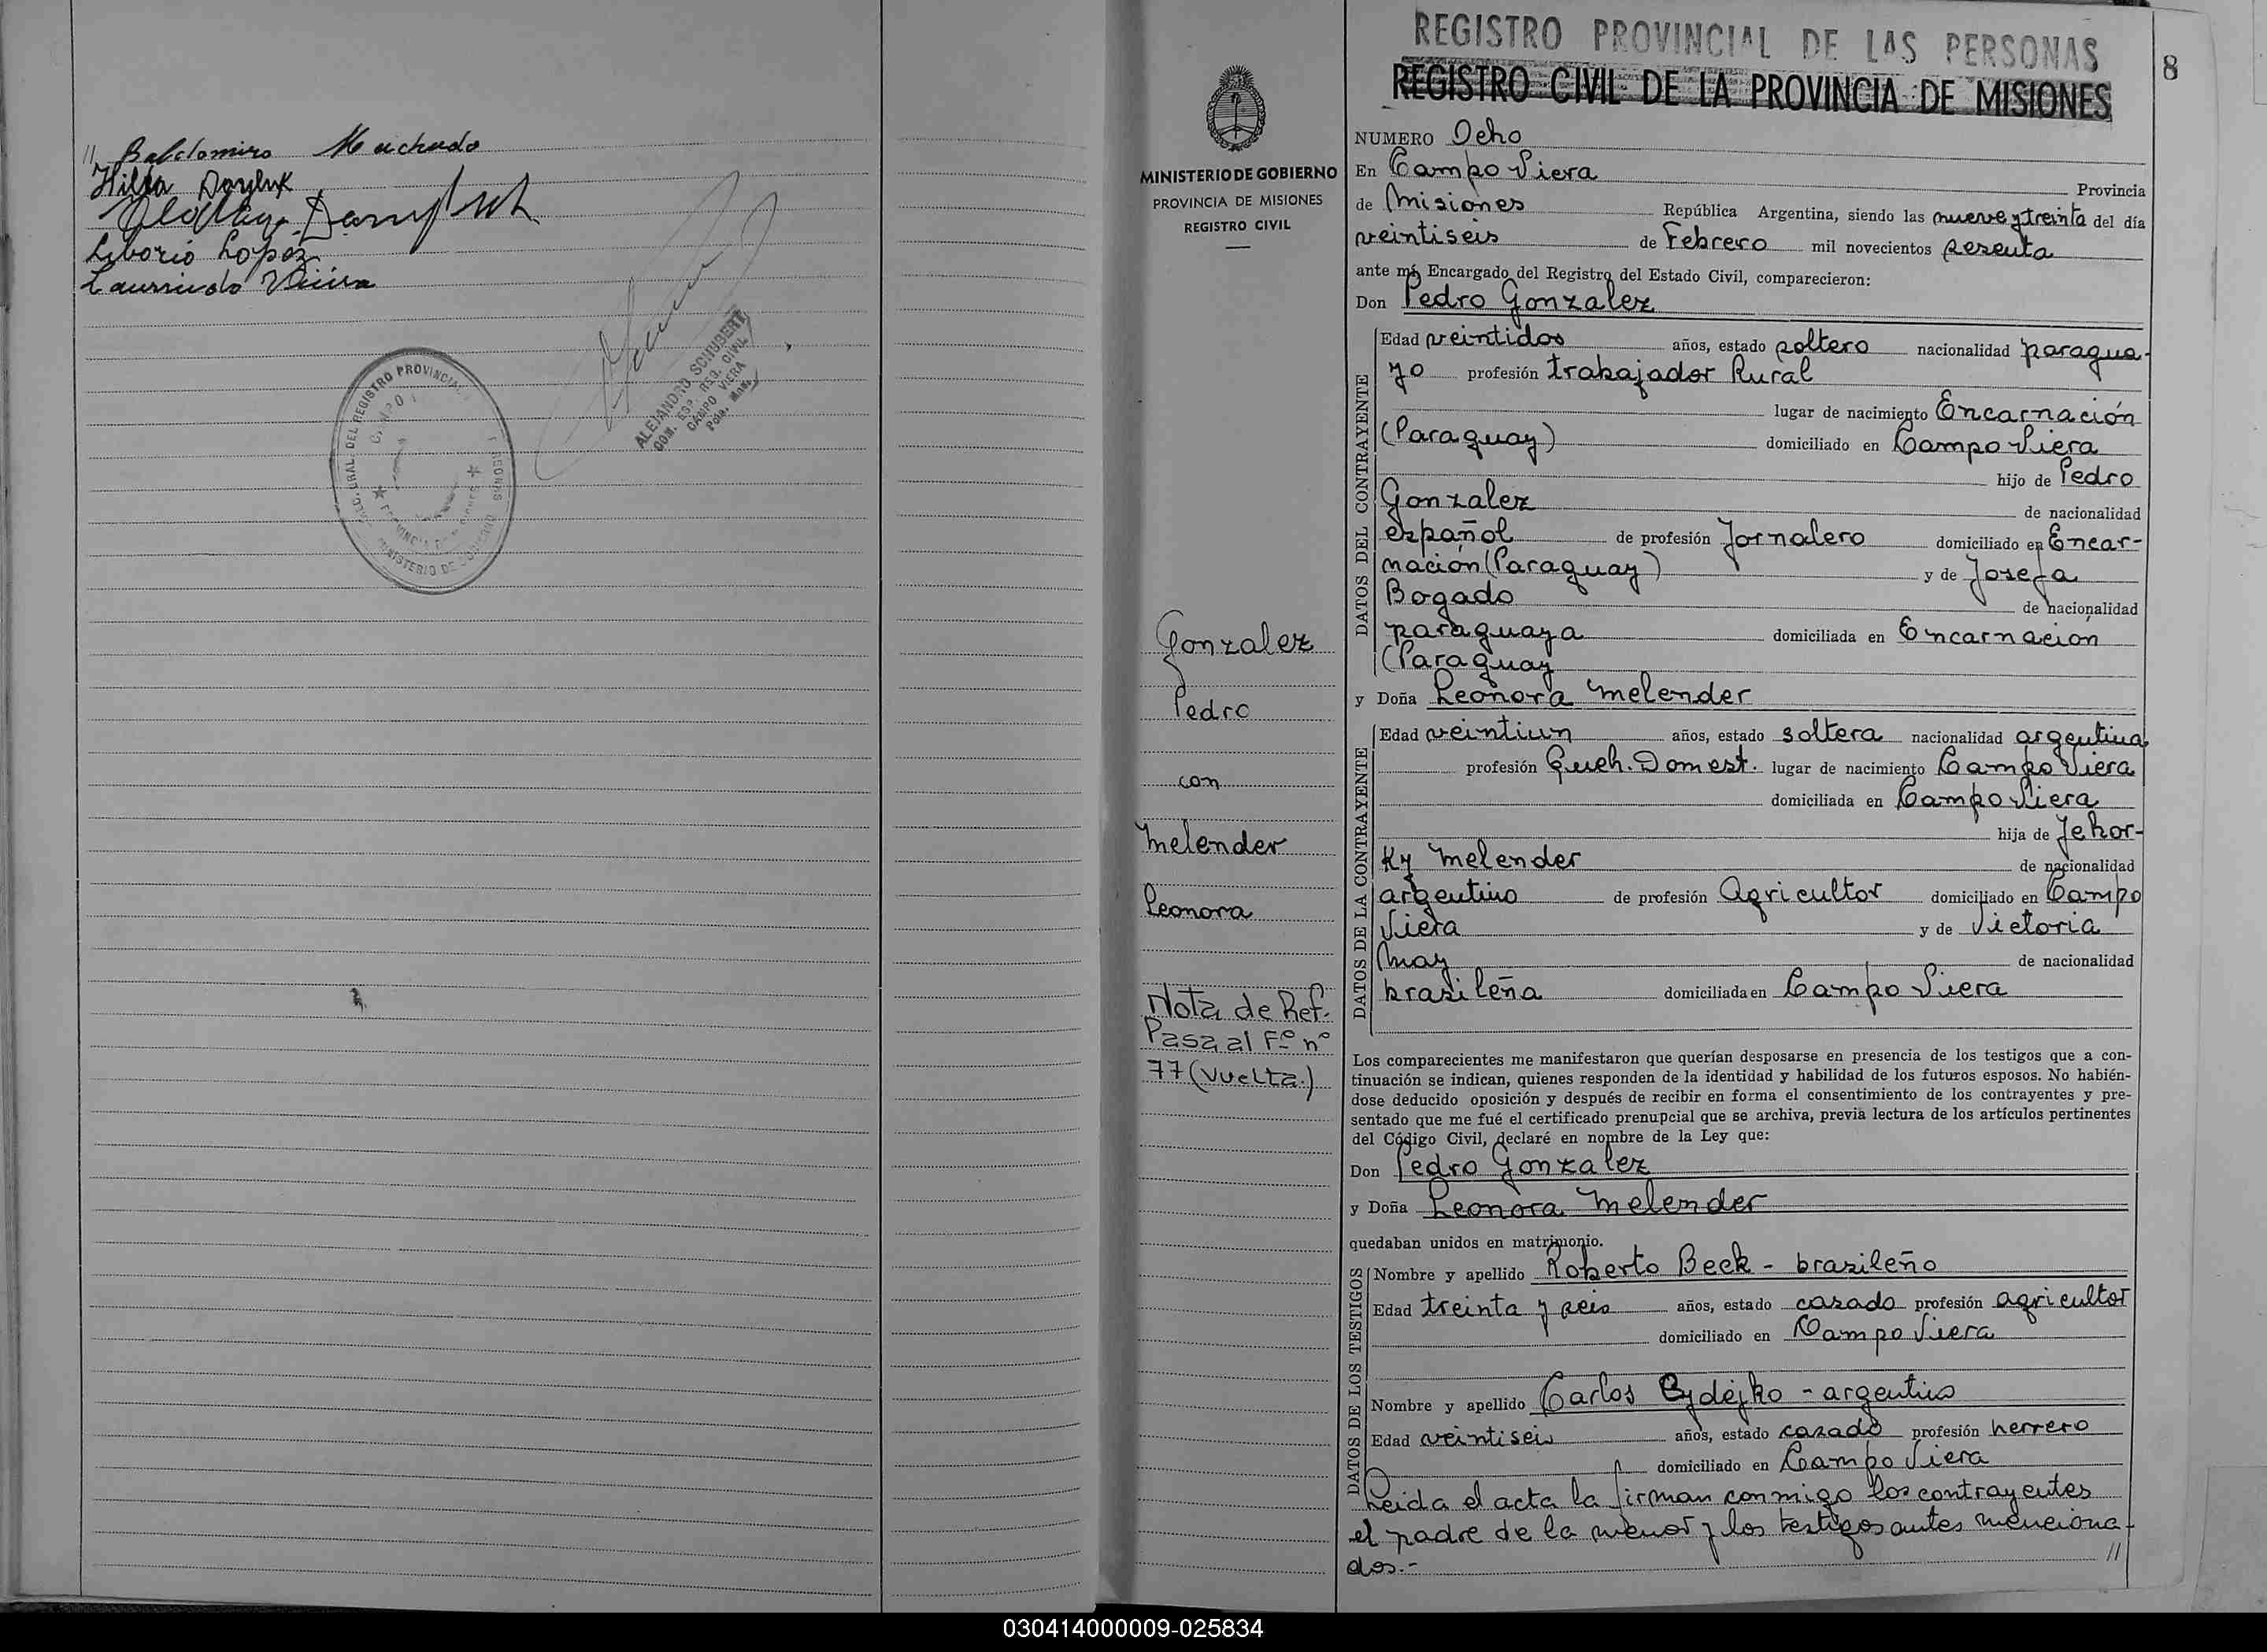 // Baldomiro Machado
Hilda
Liborio Lopez
ALEJANDRO SCHUBERT
REG. CIVIL
CAMPO VIERA
MINISTERIO DE GOBIERNO
PROVINCIA DE MISIONES
REGISTRO CIVIL
Gonzalez
Pedro
con
Melender
Leonora
Nota de Ref.
Pasa al Fº nº
77 (vuelta.)
REGISTRO PROVINCIAL DE LAS PERSONAS
REGISTRO CIVIL DE LA PROVINCIA DE MISIONES
8
NUMERO Ocho
En Campo Viera Provincia
de Misiones República Argentina, siendo las nueve y treinta del día
veintiseis de Febrero mil novecientos sesenta
ante mí Encargado del Registro del Estado Civil, comparecieron:
Don Pedro Gonzalez
DATOS DEL CONTRAYENTE
Edad veintidos años, estado soltero nacionalidad paragua-
yo profesión trabajador Rural
lugar de nacimiento Encarnación
(Paraguay) domiciliado en Campo Viera
hijo de Pedro
Gonzalez de nacionalidad
español de profesión Jornalero domiciliado en Encar-
nación (Paraguay) y de Josefa
Bogado de nacionalidad
paraguaya domiciliada en Encarnacion
(Paraguay
y Doña Leonora Melender
DATOS DE LA CONTRAYENTE
Edad veintiun años, estado soltera nacionalidad argentina
profesión Queh. Domest. lugar de nacimiento Campo Viera
domiciliada en Campo Viera
hija de Jehor-
Ky Melender de nacionalidad
argentino de profesión Agricultor domiciliado en Campo
Viera y de Victoria
May de nacionalidad
brasileña domiciliada en Campo Viera
Los comparecientes me manifestaron que querían desposarse en presencia de los testigos que a con-
tinuación se indican, quienes responden de la identidad y habilidad de los futuros esposos. No habién-
dose deducido oposición y después de recibir en forma el consentimiento de los contrayentes y pre-
sentado que me fué el certificado prenupcial que se archiva, previa lectura de los artículos pertinentes
del Código Civil, declaré en nombre de la Ley que:
Don Pedro Gonzalez
y Doña Leonora Melender
quedaban unidos en matrimonio.
DATOS DE LOS TESTIGOS
Nombre y apellido Roberto Beck - brasileño
Edad treinta y seis años, estado casado profesión agricultor
domiciliado en Campo Viera
Nombre y apellido Carlos Bydejko - argentino
Edad veintiseis años, estado casado profesión herrero
domiciliado en Campo Viera
Leida el acta la firman conmigo los contrayentes
el padre de la menor y los testigos antes menciona-
dos.- //
030414000009-025834